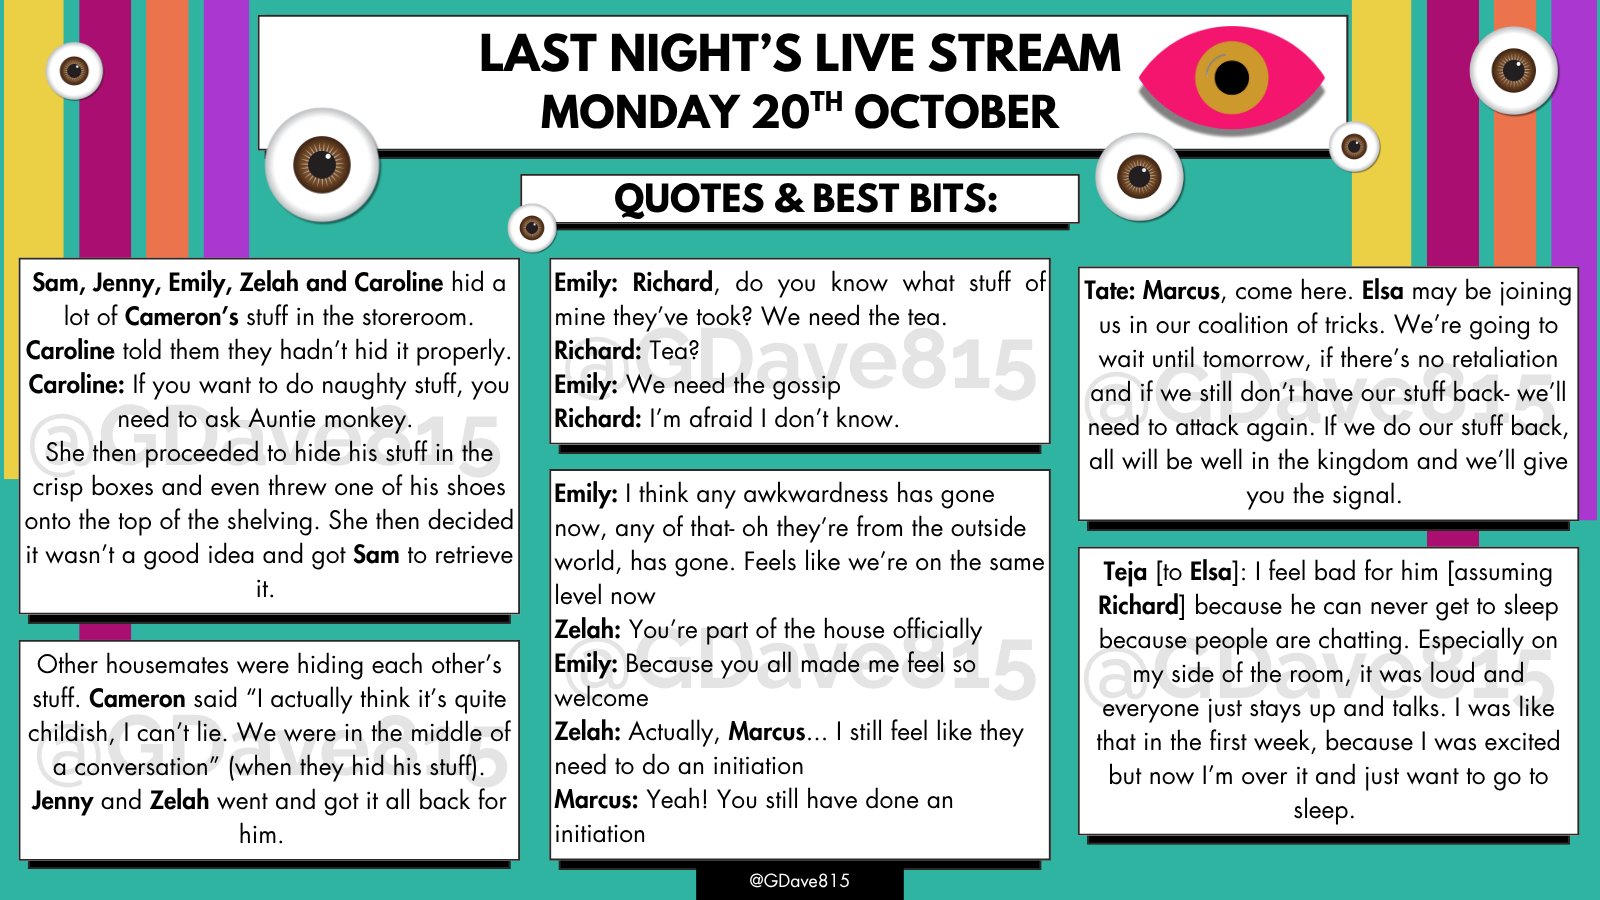 LAST NIGHT'S LIVE STREAM
MONDAY 20TH OCTOBER
QUOTES & BEST BITS:
Sam, Jenny, Emily, Zelah and Caroline hid a
lot of Cameron's stuff in the storeroom.
Caroline told them they hadn't hid it properly.
Caroline: If you want to do naughty stuff, you
need to ask Auntie monkey.
She then proceeded to hide his stuff in the
crisp boxes and even threw one of his shoes
onto the top of the shelving. She then decided
it wasn't a good idea and got Sam to retrieve
it.
@GDave815
Other housemates were hiding each other's
stuff. Cameron said “I actually think it's quite
childish, I can't lie. We were in the middle of
a conversation” (when they hid his stuff).
Jenny and Zelah went and got it all back for
him.
@GDave815
Emily: Richard, do you know what stuff of
mine they've took? We need the tea.
Richard: Tea?
Emily: We need the gossip
Richard: I'm afraid I don't know.
@GDave815
Emily: I think any awkwardness has gone
now, any of that- oh they're from the outside
world, has gone. Feels like we're on the same
level now
Zelah: You're part of the house officially
Emily: Because you all made me feel so
welcome
Zelah: Actually, Marcus... I still feel like they
need to do an initiation
Marcus: Yeah! You still have done an
initiation
@GDave815
Tate: Marcus, come here. Elsa may be joining
us in our coalition of tricks. We're going to
wait until tomorrow, if there's no retaliation
and if we still don't have our stuff back- we'll
need to attack again. If we do our stuff back,
all will be well in the kingdom and we'll give
you the signal.
@GDave815
Teja [to Elsa]: I feel bad for him [assuming
Richard] because he can never get to sleep
because people are chatting. Especially on
my side of the room, it was loud and
everyone just stays up and talks. I was like
that in the first week, because I was excited
but now I'm over it and just want to go to
sleep.
@GDave815
@GDave815